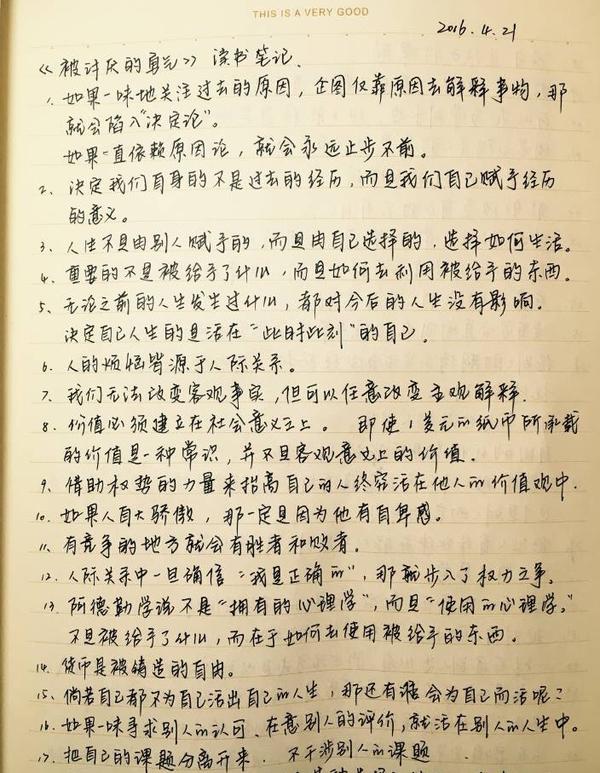 THIS IS A VERY GOOD
2016.4.21
《被讨厌的勇气》读书笔记.
1. 如果一味地关注过去的原因，企图仅靠原因去解释事物，那
就会陷入"决定论"。
如果一直依赖原因论，就会永远止步不前。
2、决定我们自身的不是过去的经历，而是我们自己赋予经历
的意义。
3、人生不是由别人赋予的，而是由自己选择的，选择如何生活。
4、重要的不是被给予了什么，而是如何去利用被给予的东西。
5、无论之前的人生发生过什么，都对今后的人生没有影响。
决定自己人生的是活在"此时此刻"的自己。
6、人的烦恼皆源于人际关系。
7、我们无法改变客观事实，但可以任意改变主观解释.
8、价值必须建立在社会意义之上。即使1美元的纸币所承载
的价值是一种常识，并不是客观意义上的价值.
9、借助权势的力量来抬高自己的人终究活在他人的价值观中.
10、如果人自大骄傲，那一定是因为他有自卑感。
11、有竞争的地方就会有胜者和败者。
12、人际关系中一旦确信"我是正确的"，那就步入了权力之争。
13、阿德勒学说不是"拥有的心理学"，而是"使用的心理学。"
不是被给予了什么，而在于如何去使用被给予的东西。
14、货币是被铸造的自由。
15、倘若自己都不为自己活出自己的人生，那还有谁会为自己而活呢？
16、如果一味寻求别人的认可、在意别人的评价，就活在别人的人生中。
17、把自己的课题分离开来．不干涉别人的课题